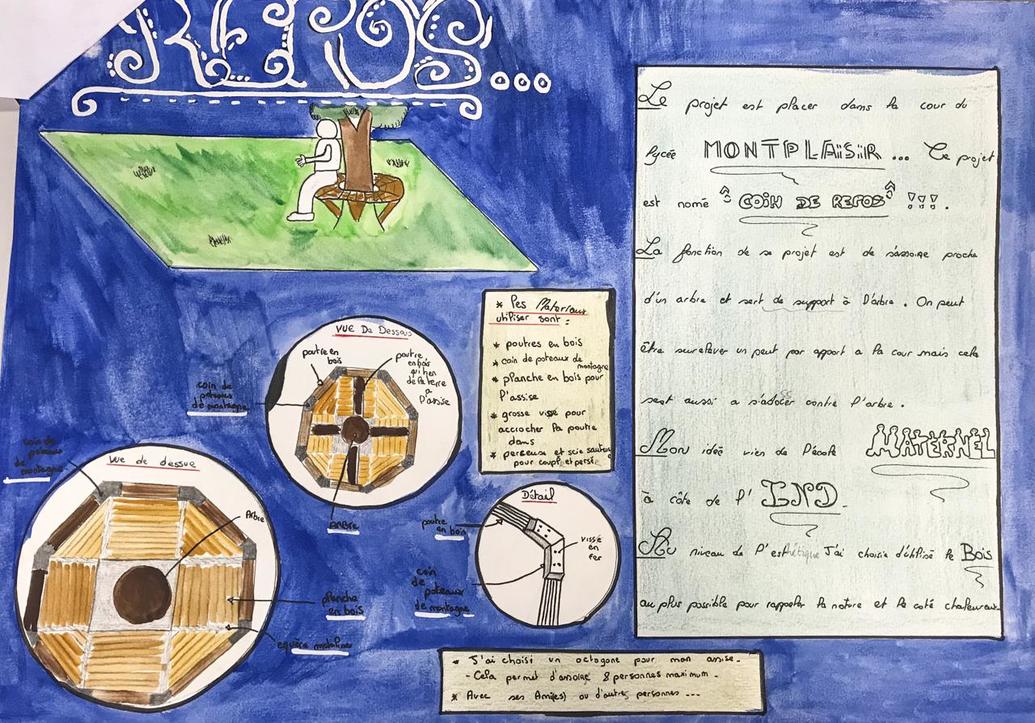 REPOS...
Le projet est placer dans la cour du
lycée MONTPLAiSiR... Ce projet
est nomé "COiN DE REPOS" !!!.
La fonction de se projet est de s'assoire proche
d'un arbre et sert de support à l'arbre. On peut
être surelever un peut par apport a la cour mais cela
sert aussi a s'adosser contre l'arbre.
Mon idéé vien de l'école MATERNEL
à côte de l' IND.
Au niveau de l'esthétique J'ai choisie d'utilisé le Bois
au plus possible pour rappeler la nature et le coté chaleureux.
* Les Materiaux
utiliser sont :
* poutres en bois
* coin de poteaux de
montagne
* planche en bois pour
l'assise
* grosse visse pour
accrocher la poutre
dans
* perseuse et scie sauteuse
pour coupé et persé.
VUE De Dessous
poutre en
bois
poutre
en bois
qui tien
de la terre
a
l'assise
coin de
poteaux
de montagne
ARBRE
Vue de dessue
coin de
poteaux
de montagne
Arbre
planche
en bois
équère métaline
Détail
poutre
en bois
vissé
en
fer
coin
de
poteaux
de
montagne
* J'ai choisi un octogone pour mon assise.
- Cela permet d'assoire 8 personnes maximum.
* Avec ses Ami(es) ou d'autres personnes...